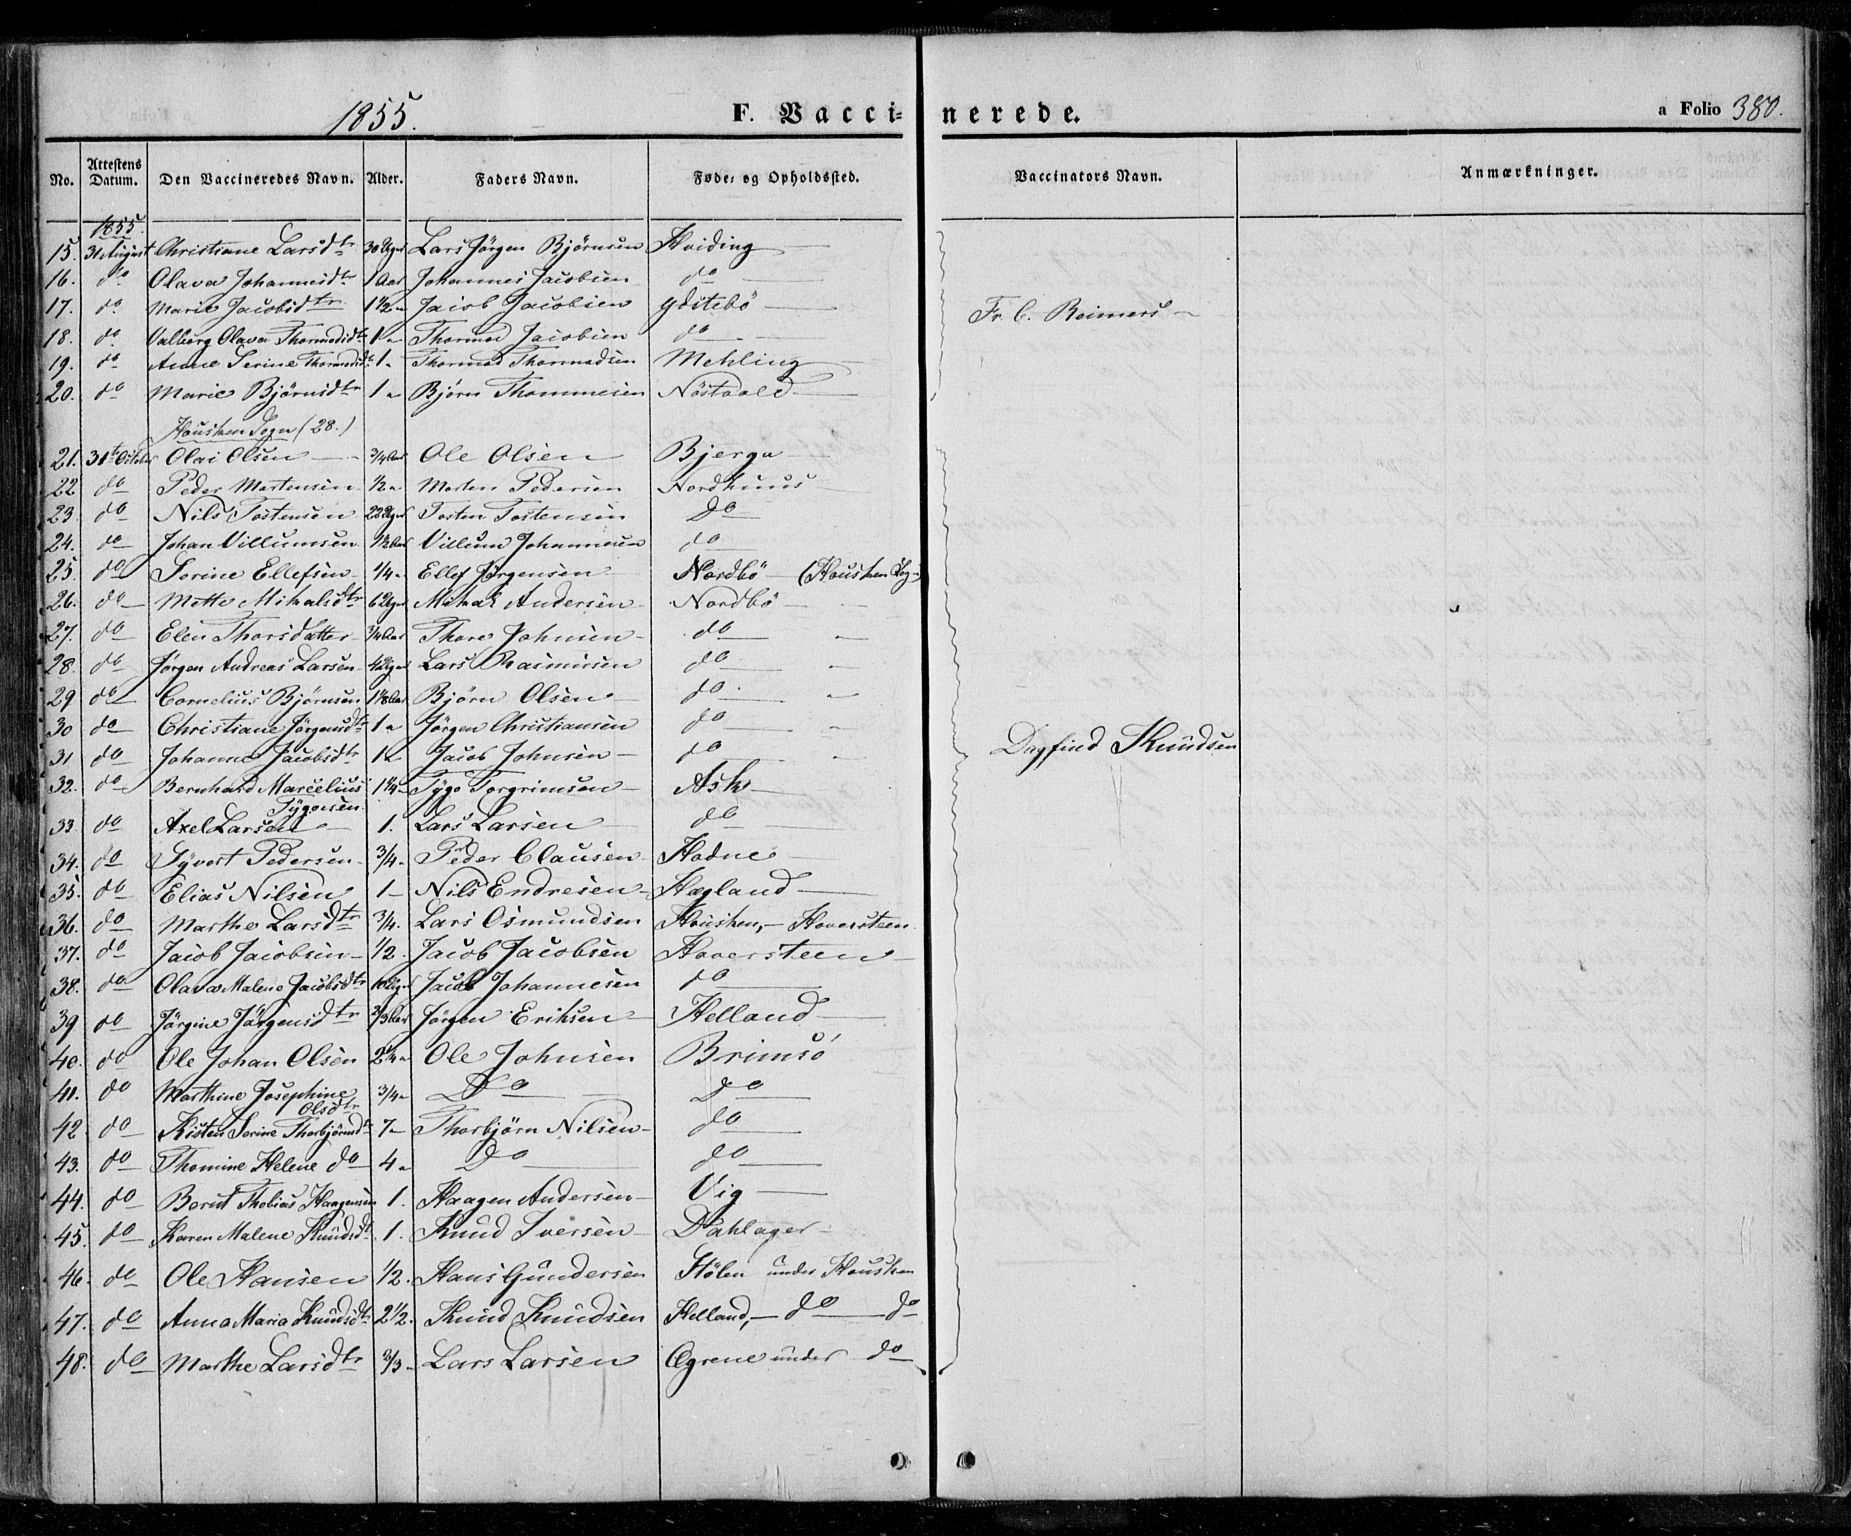 1855. F. Vacci- nerede. a Folio 380.
No. Attestens Datum. Den Vaccineredes Navn. Alder. Faders Navn. Føde- og Opholdssted. Vaccinators Navn. Anmærkninger.
1855.
15. 31 August Christiane Larsdtr 30 Uger Lars Jörgen Bjørnsen Hviding
16. do Olava Johannesdtr 1 Aar Johannes Jacobsen do
17. do Marie Jacobsdtr 1½ " Jacob Jacobsen Ydstebö Fr. C. Reimers
18. do Valborg Olava Thormodsdtr 1 " Thormod Jacobsen do
19. do Anne Serine Thormodsdtr 1 " Thormod Thormodsen Mehling
20. do Marie Bjørnsdtr 1 " Bjørn Thommesen Nöstvold
Housken Sogn (28.)
21. 31te October Olai Olsen ¾ Aar Ole Olsen Bjerga
22 do Peder Mortensen ½ " Morten Pedersen Nordhuus
23. do Nils Tostensen 22 Uger Tosten Tostensen Do
24. do Johan Villumsen 1½ Aar Villum Johannesen do
25. do Serine Ellefsen ¼ " Ellef Jørgensen Nordbö (Housken Sogn)
26. do Mette Mikalsdtr 6 Uger Mikal Andersen Nordbö
27. do Elen Thorsdatter ¾ Aar Thore Johnsen do "
28. do Jørgen Andreas Larsen 42 Uger Lars Rasmusen do "
29 do Cornelius Bjørnsen 1⅛ Aar Bjørn Olsen do "
30 do Christiane Jørgensdtr 1 " Jørgen Christiansen do "
31 do Johanne Jacobsdtr 1 " Jacob Johnsen do " Dagfind Knudsen
32. do Bernhard Marcelius 1¼ " Tygo Torgrimsen Ask
Tygosen
33. do Axel Larsen 1. Lars Larsen do
34. do Syvert Pedersen ¾ " Peder Clausen Hodne
35. do Elias Nilsen 1 Nils Endresen Hægland
36. do Marthe Larsdtr ¾. Lars Osmundsen Housken, Hoversteen
37. do Jacob Jacobsen ½. Jacob Jacobsen Hoversteen
38. do Olava Malene Jacobsdtr 10 Uger Jacob Johannesen do
39 do Jørgine Jørgensdtr ⅔ Aar Jørgen Eriksen Helland
40. do Ole Johan Olsen 2¼ " Ole Johnsen Brimsö
41. do Marthine Josephine ¾ " Do Do
Olsdtr
42. do Kisten Serine Thorbjörnsdtr 7 Thorbjörn Nilsen do
43. do Thomine Helene do 4 " Do do
44. do Bernt Thobias Haagensen 1. Haagen Andersen Vig
45. do Karen Malene Knudsdtr 1. Knud Iversen Dahlager
46. do Ole Hansen ½. Hans Gundersen Stølen under Housken
47. do Anna Maria Knudsdtr 2½. Knud Knudsen Helland, do do
48. do Marthe Larsdtr ⅔ " Lars Larsen Øgrene under do